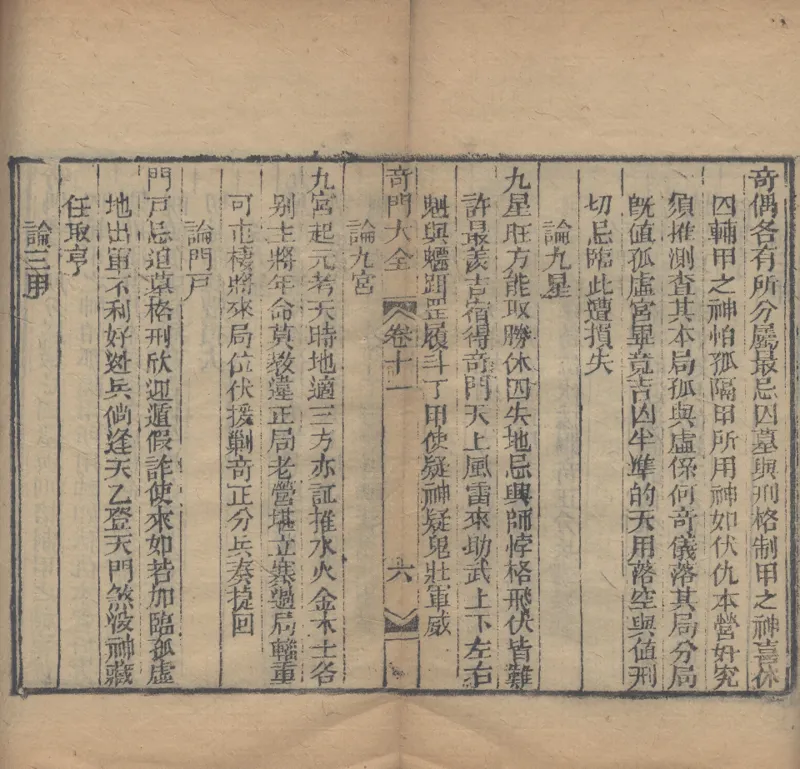 奇偶各有所分屬最忌囚墓與刑格制甲之神喜休
囚輔甲之神怕孤隔甲所用神如伏仇本營好究
須推測查其本局孤與虛係何奇儀落其局分局
旣值孤虛宮畢竟吉凶半準的天用落空與值刑
切忌臨此遭損失
論九星
九星旺方能取勝休囚失地忌興師悖格飛伏皆難
許最羨吉宿得奇門天上風雷來助武上下左右
魁與魓跙罡履斗丁甲使疑神疑鬼壯軍威
奇門大全 卷十一 六
論九宮
九宮起元考天時地適三方亦証推水火金木土各
别主將年命莫教違正局老營堪立寨過局輜重
可屯棲將來局位伏援剿奇正分兵奏捷回
論門戶
門戶忌迫墓格刑欣迎遁假詐使來如若加臨孤虛
地出軍不利好迯兵倘逢天乙登天門煞没神藏
任取亨
論三甲